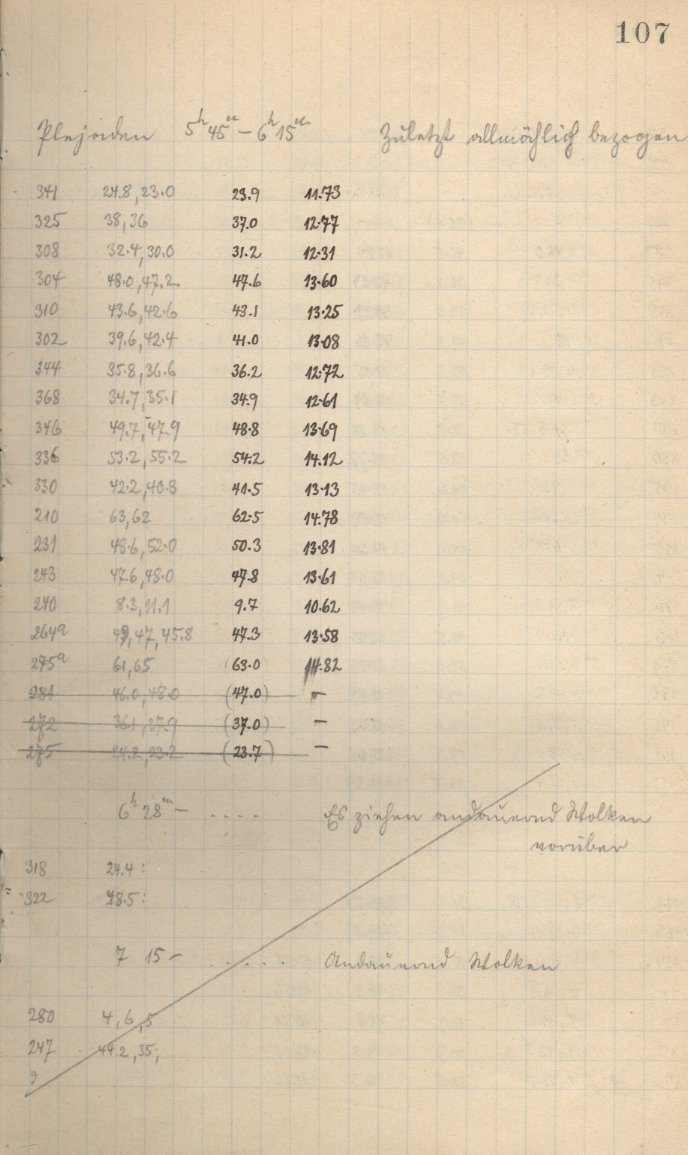 107
Plejaden 5ʰ 45ᵐ – 6ʰ 15ᵐ Zuletzt allmählich bezogen
341 24.8, 23.0 23.9 11.73
325 38, 36 37.0 12.77
308 32.4, 30.0 31.2 12.31
304 48.0, 47.2 47.6 13.60
310 43.6, 42.6 43.1 13.25
302 39.6, 42.4 41.0 13.08
344 35.8, 36.6 36.2 12.72
368 34.7, 35.1 34.9 12.61
346 49.7, 47.9 48.8 13.69
336 53.2, 55.2 54.2 14.12
330 42.2, 40.8 41.5 13.13
210 63, 62 62.5 14.78
231 48.6, 52.0 50.3 13.81
243 47.6, 48.0 47.8 13.61
240 8.3, 11.1 9.7 10.62
264a 49, 47, 45.8 47.3 13.58
275a 61, 65 63.0 14.82
281 46.0, 48.0 (47.0) –
272 36.1, 37.9 (37.0) –
275 24.2, 23.2 (23.7) –
6ʰ 28ᵐ – .... Es ziehen andauernd Wolken
vorüber
318 24.4:
322 28.5:
7 15 – ..... Andauernd Wolken
280 4, 6, 5
247 44.2, 35;